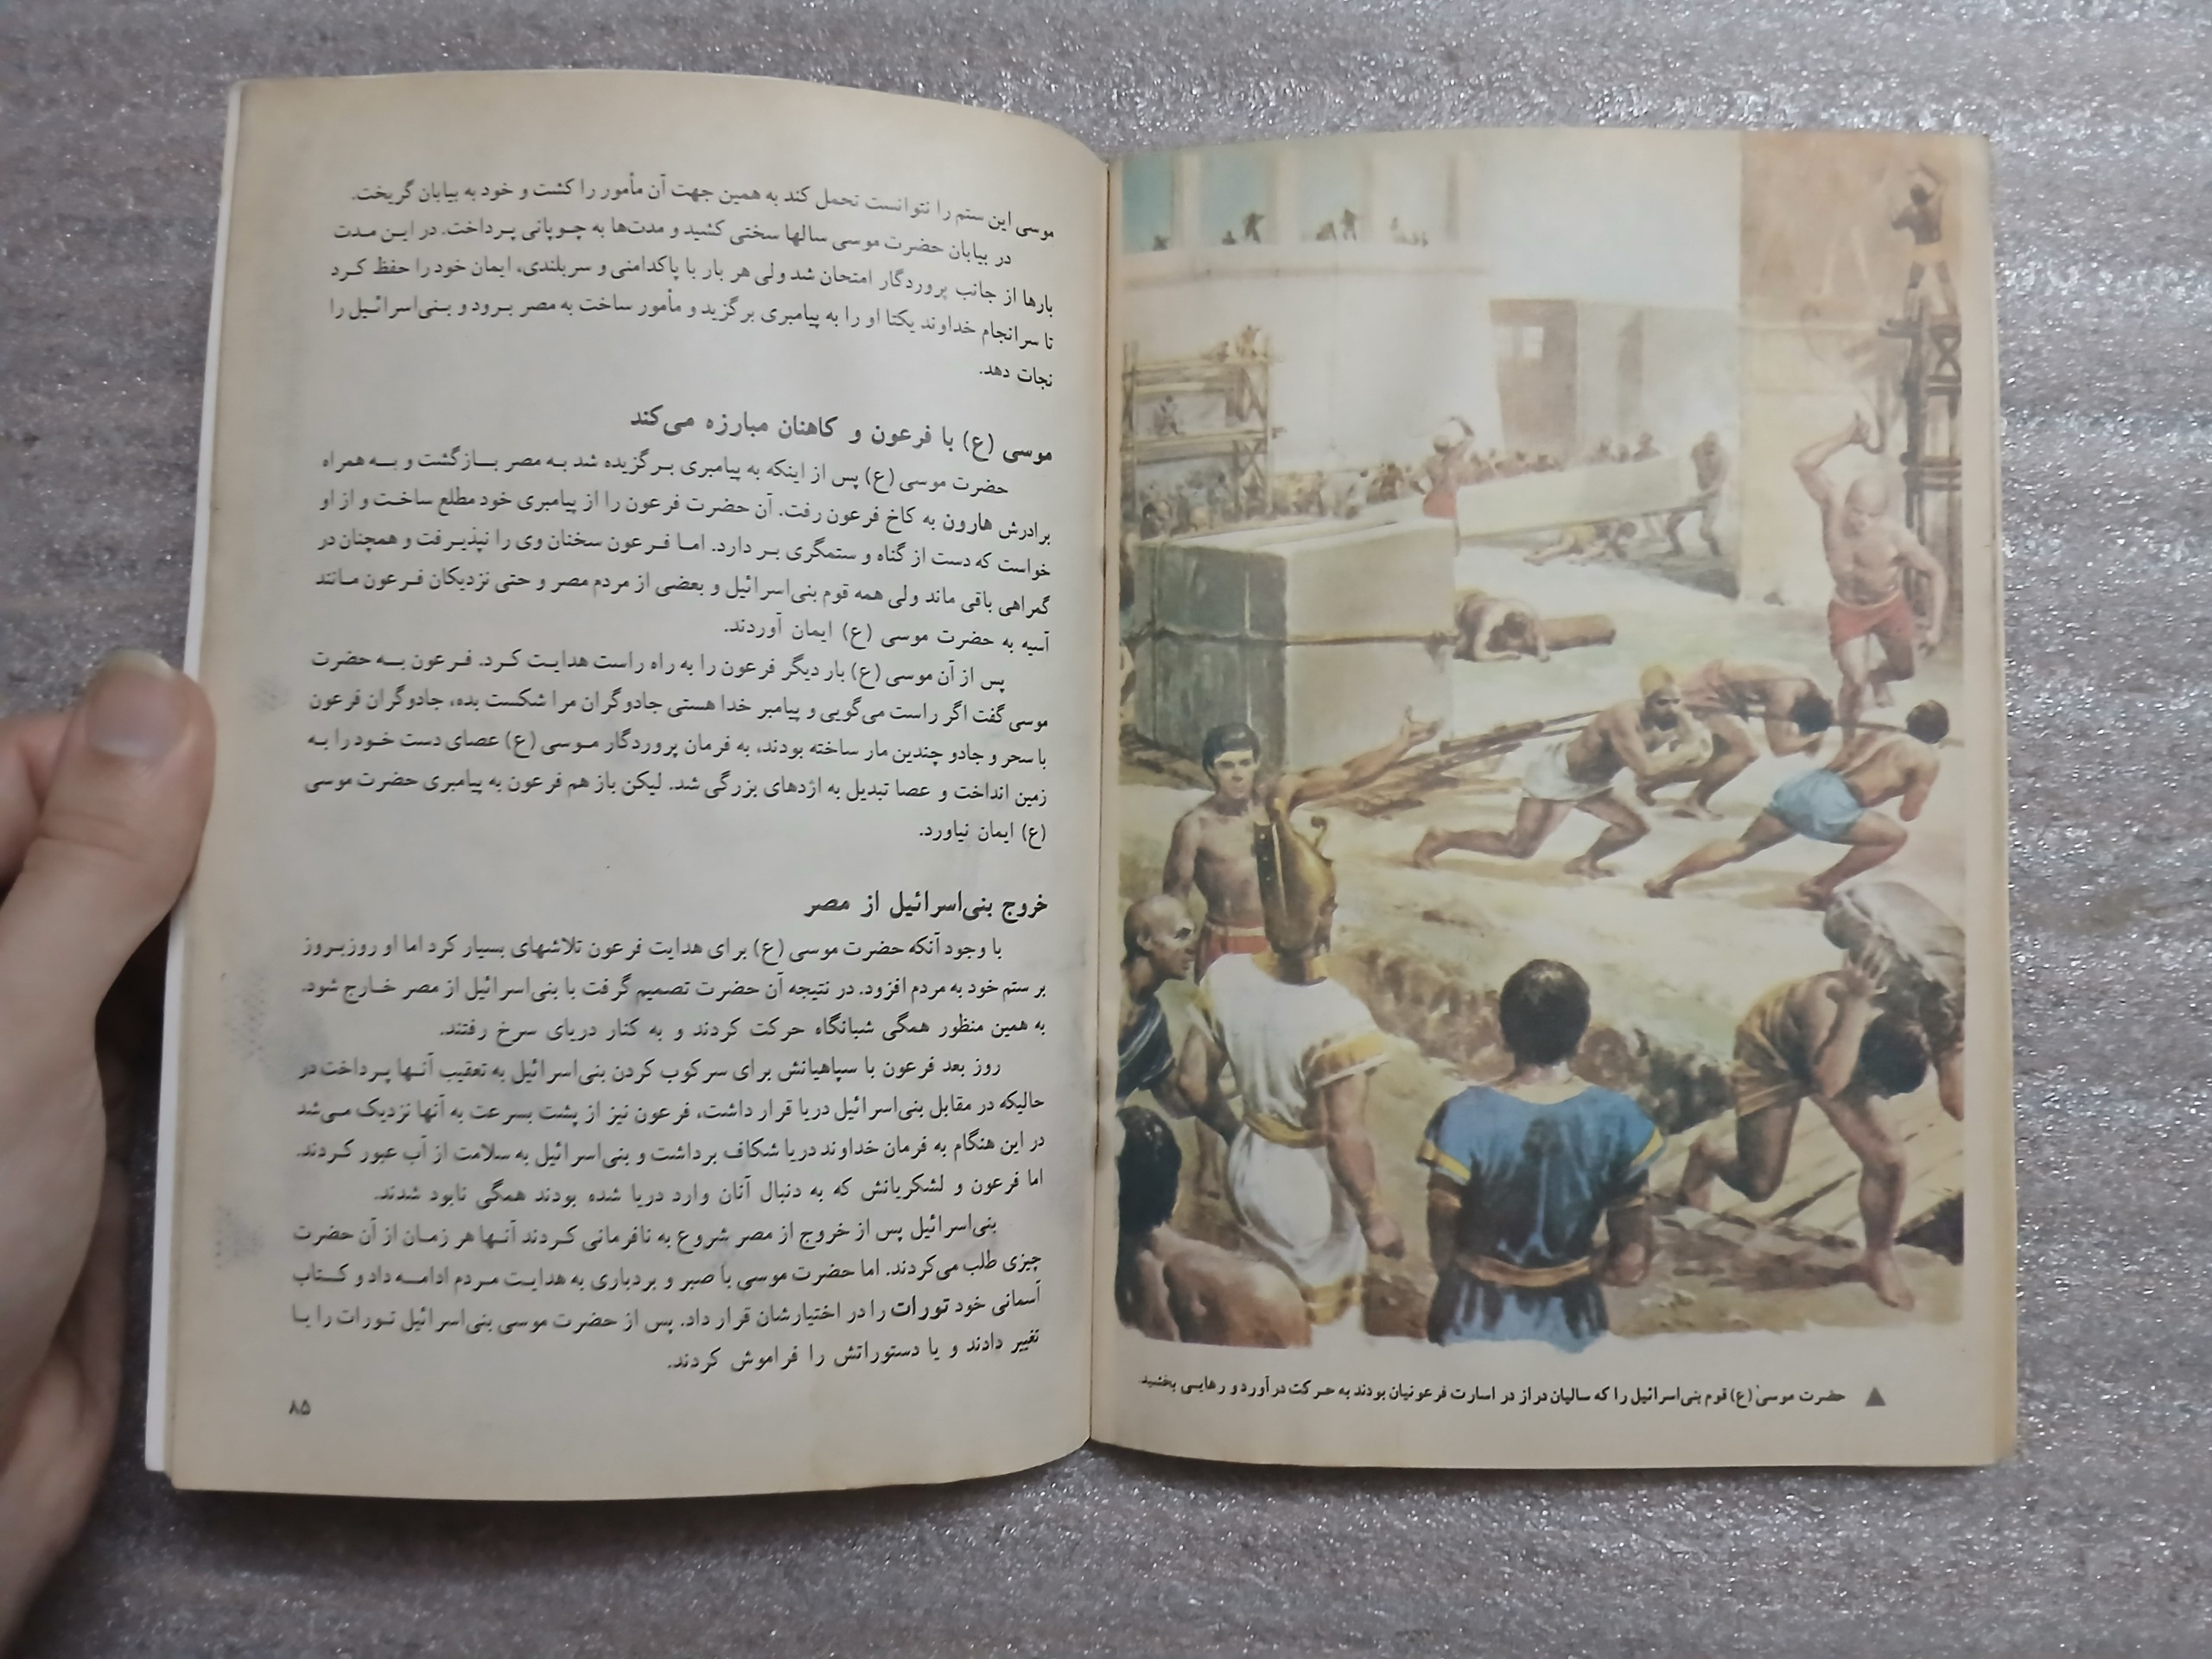 حضرت موسی (ع) قوم بنی‌اسرائیل را که سالیان دراز در اسارت فرعونیان بودند به حرکت درآورد و رهایی بخشید.
موسی این ستم را نتوانست تحمل کند به همین جهت آن مأمور را کشت و خود به بیابان گریخت.
در بیابان حضرت موسی سالها سختی کشید و مدت‌ها به چوپانی پرداخت. در این مدت
بارها از جانب پروردگار امتحان شد ولی هر بار با پاکدامنی و سربلندی، ایمان خود را حفظ کرد
تا سرانجام خداوند یکتا او را به پیامبری برگزید و مأمور ساخت به مصر برود و بنی‌اسرائیل را
نجات دهد.
موسی (ع) با فرعون و کاهنان مبارزه می‌کند
حضرت موسی (ع) پس از اینکه به پیامبری برگزیده شد به مصر بازگشت و به همراه
برادرش هارون به کاخ فرعون رفت. آن حضرت فرعون را از پیامبری خود مطلع ساخت و از او
خواست که دست از گناه و ستمگری بر دارد. اما فرعون سخنان وی را نپذیرفت و همچنان در
گمراهی باقی ماند ولی همه قوم بنی‌اسرائیل و بعضی از مردم مصر و حتی نزدیکان فرعون مانند
آسیه به حضرت موسی (ع) ایمان آوردند.
پس از آن موسی (ع) بار دیگر فرعون را به راه راست هدایت کرد. فرعون به حضرت
موسی گفت اگر راست می‌گویی و پیامبر خدا هستی جادوگران مرا شکست بده، جادوگران فرعون
با سحر و جادو چندین مار ساخته بودند، به فرمان پروردگار موسی (ع) عصای دست خود را به
زمین انداخت و عصا تبدیل به اژدهای بزرگی شد. لیکن باز هم فرعون به پیامبری حضرت موسی
(ع) ایمان نیاورد.
خروج بنی‌اسرائیل از مصر
با وجود آنکه حضرت موسی (ع) برای هدایت فرعون تلاشهای بسیار کرد اما او روزبروز
بر ستم خود به مردم افزود. در نتیجه آن حضرت تصمیم گرفت با بنی‌اسرائیل از مصر خارج شود.
به همین منظور همگی شبانگاه حرکت کردند و به کنار دریای سرخ رفتند.
روز بعد فرعون با سپاهیانش برای سرکوب کردن بنی‌اسرائیل به تعقیب آنها پرداخت در
حالیکه در مقابل بنی‌اسرائیل دریا قرار داشت، فرعون نیز از پشت بسرعت به آنها نزدیک می‌شد
در این هنگام به فرمان خداوند دریا شکاف برداشت و بنی‌اسرائیل به سلامت از آب عبور کردند.
اما فرعون و لشکریانش که به دنبال آنان وارد دریا شده بودند همگی نابود شدند.
بنی‌اسرائیل پس از خروج از مصر شروع به نافرمانی کردند آنها هر زمان از آن حضرت
چیزی طلب می‌کردند. اما حضرت موسی با صبر و بردباری به هدایت مردم ادامه داد و کتاب
آسمانی خود تورات را در اختیارشان قرار داد. پس از حضرت موسی بنی‌اسرائیل تورات را یا
تغییر دادند و یا دستوراتش را فراموش کردند.
۸۵